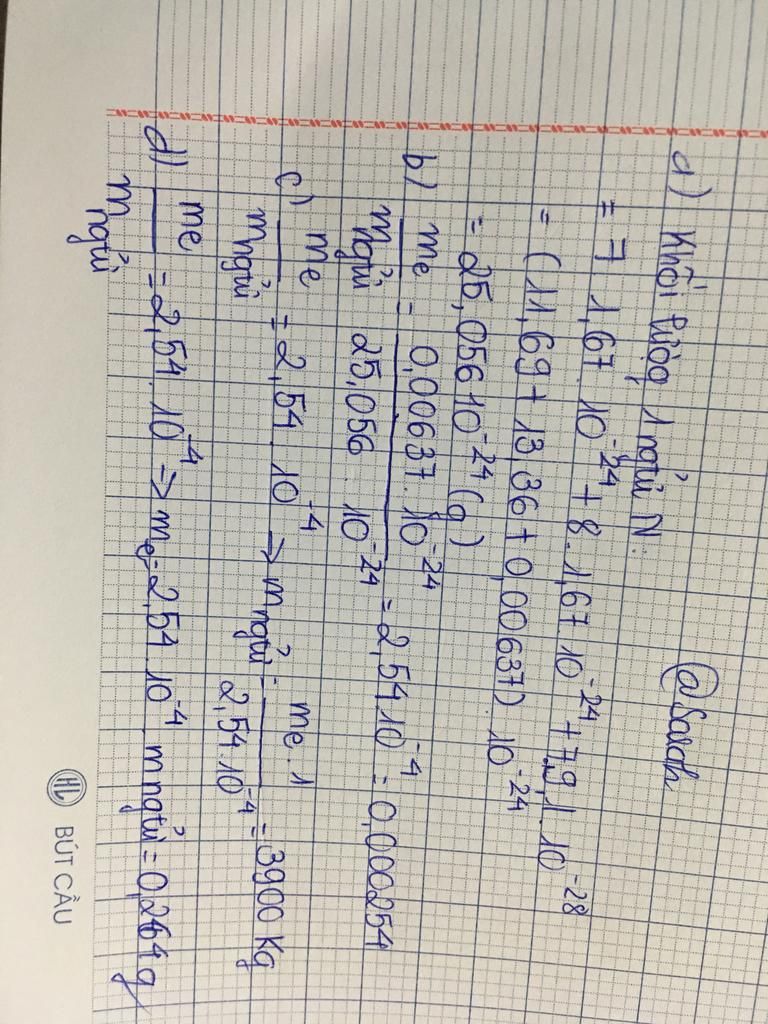 @Sarah
a) Khối lượng 1 ngtử N:
= 7 1,67. 10⁻²⁴ + 8.1,67.10⁻²⁴ + 7.9,1.10⁻²⁸
= (11,69 + 13,36 + 0,00637).10⁻²⁴
= 25,056 10⁻²⁴ (g)
b) me / m ngtử = 0,00637.10⁻²⁴ / 25,056 . 10⁻²⁴ = 2,54.10⁻⁴ = 0,000254
c) me / m ngtử = 2,54. 10⁻⁴ => m ngtử = me.1 / 2,54 10⁻⁴ = 3900 Kg
d) me / m ngtử = 2,54. 10⁻⁴ => me = 2,54.10⁻⁴. m ngtử = 0,2641 g
HL BÚT CẦU